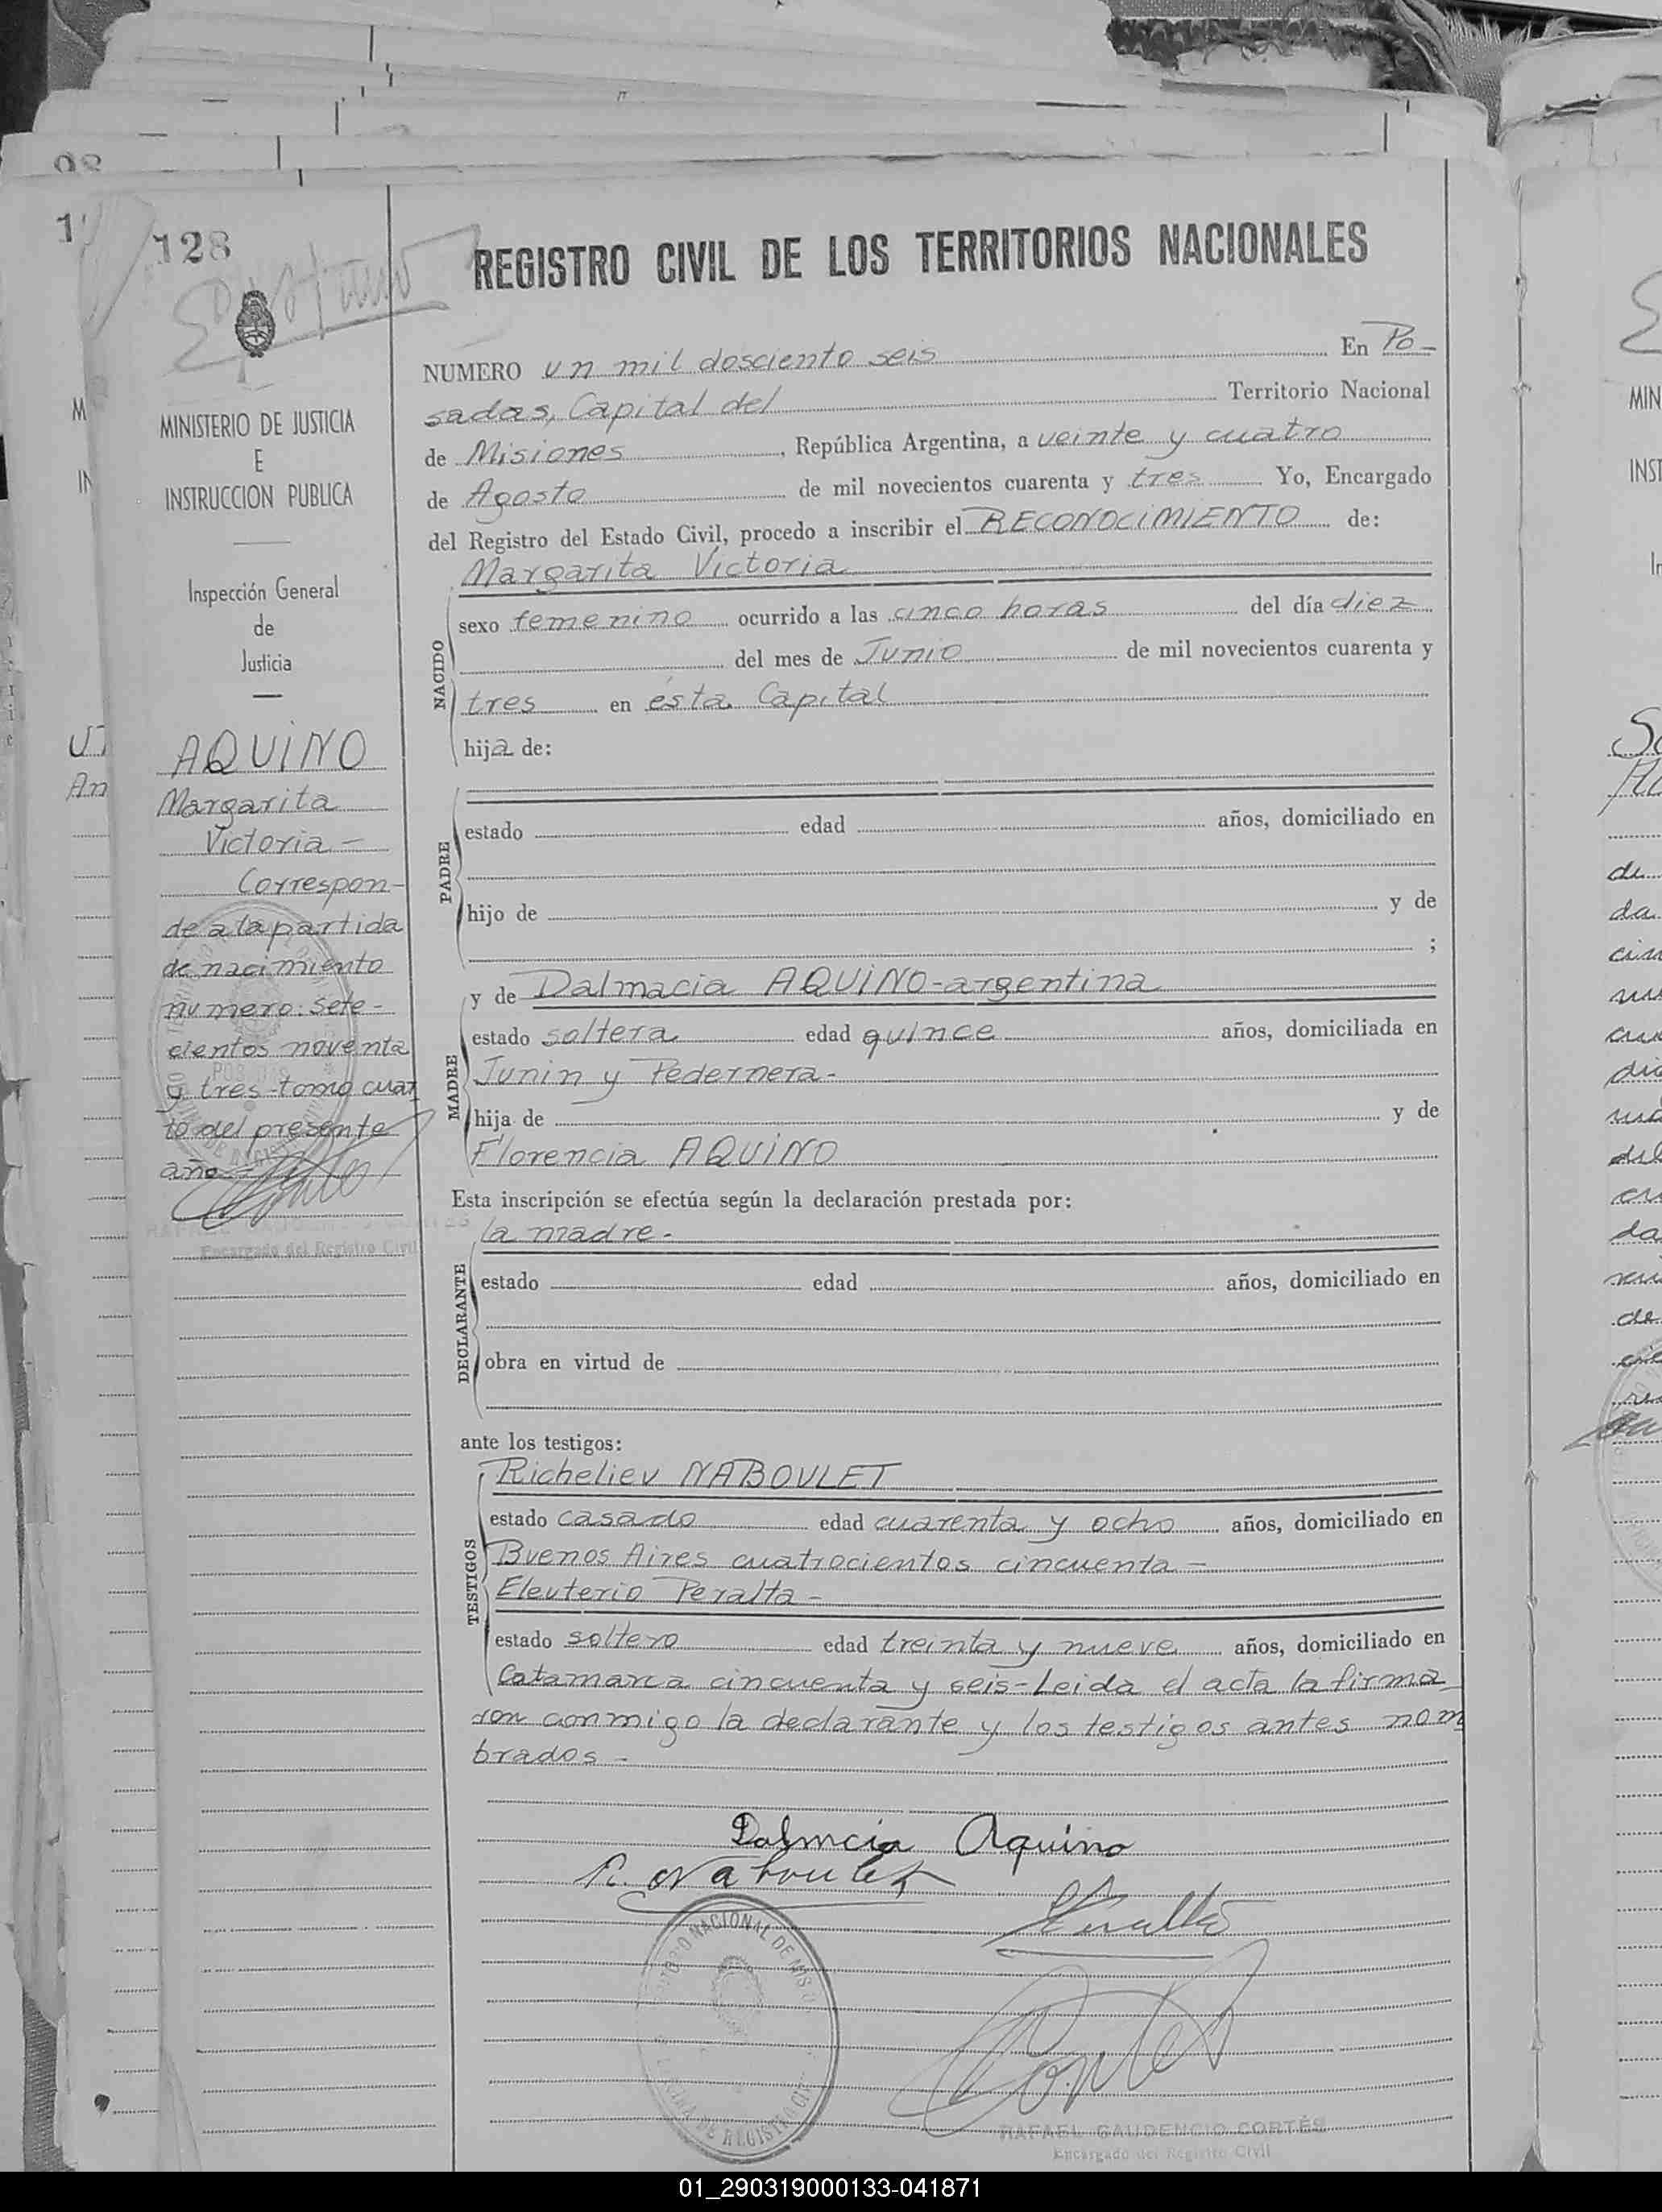 98
128
REGISTRO CIVIL DE LOS TERRITORIOS NACIONALES
MINISTERIO DE JUSTICIA
E
INSTRUCCION PUBLICA
Inspección General
de
Justicia
AQUINO
Margarita
Victoria -
Correspon-
de a la partida
de nacimiento
numero: sete-
cientos noventa
y tres-tomo cuar
to del presente
año-
Encargado del Registro Civil
NUMERO un mil dosciento seis En Po-
sadas, Capital del Territorio Nacional
de Misiones, República Argentina, a veinte y cuatro
de Agosto de mil novecientos cuarenta y tres Yo, Encargado
del Registro del Estado Civil, procedo a inscribir el RECONOCIMIENTO de:
Margarita Victoria
NACIDO
sexo femenino ocurrido a las cinco horas del día diez
del mes de Junio de mil novecientos cuarenta y
tres en ésta Capital
hija de:
PADRE
estado edad años, domiciliado en
hijo de y de
;
MADRE
y de Dalmacia AQUINO-argentina
estado soltera edad quince años, domiciliada en
Junin y Pedernera-
hija de y de
Florencia AQUINO
Esta inscripción se efectúa según la declaración prestada por:
la madre-
DECLARANTE
estado edad años, domiciliado en
obra en virtud de
ante los testigos:
TESTIGOS
Richelieu NABOULET
estado casado edad cuarenta y ocho años, domiciliado en
Buenos Aires cuatrocientos cincuenta-
Eleuterio Peralta-
estado soltero edad treinta y nueve años, domiciliado en
Catamarca cincuenta y seis-Leida el acta la firma
ron conmigo la declarante y los testigos antes nom
brados-
Dalmcia Aquino
R. Naboulet
RAFAEL GAUDENCIO CORTÉS
Encargado del Registro Civil
01_290319000133-041871